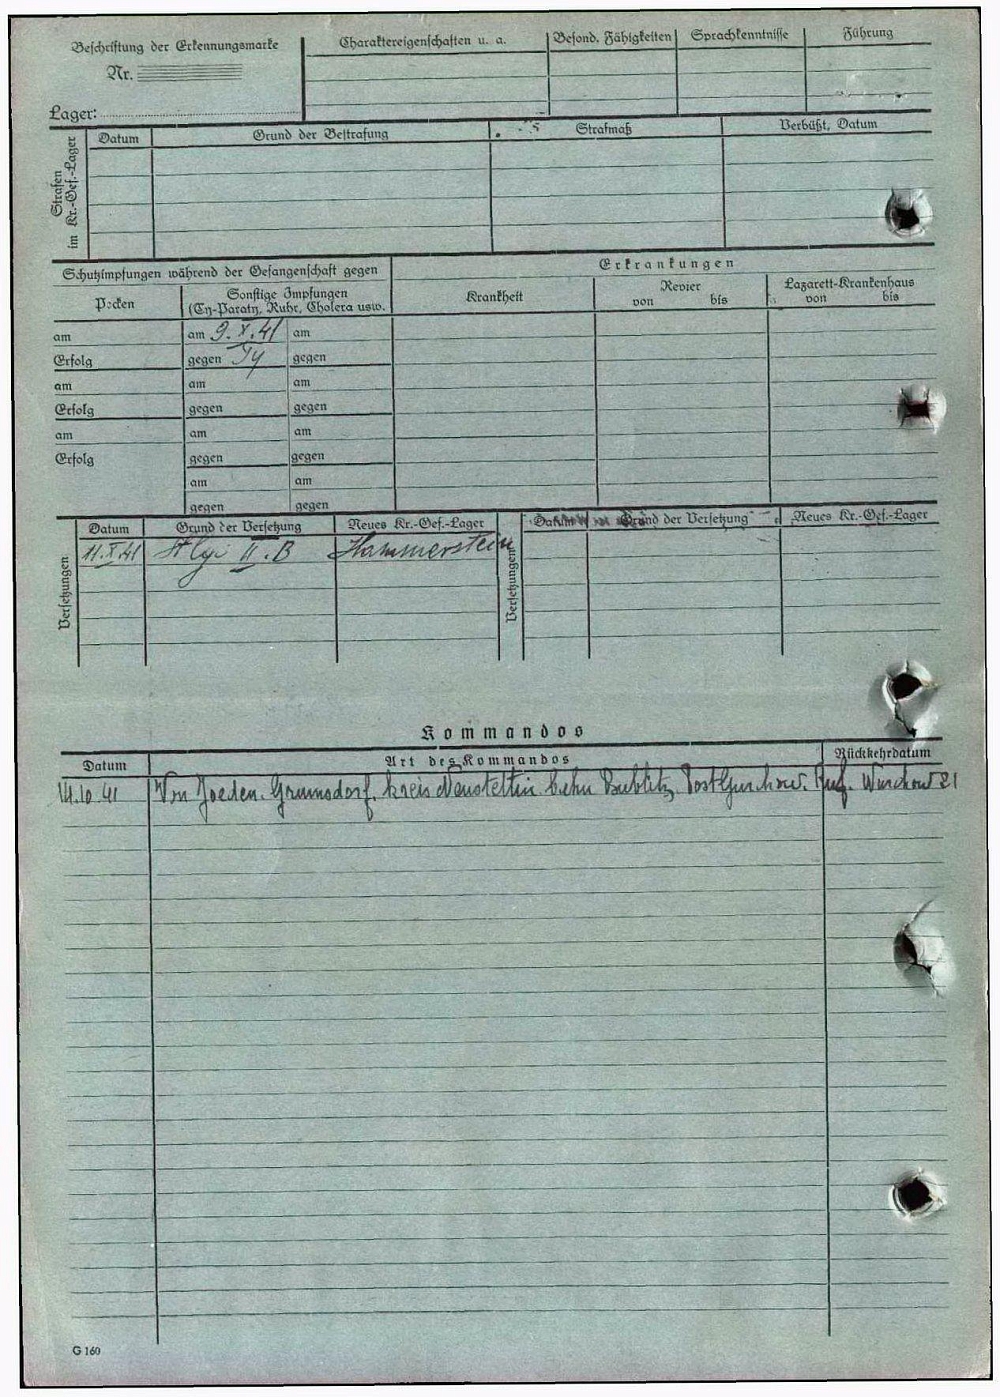 Beschriftung der Erkennungsmarke
Nr.
Lager:
Charaktereigenschaften u. a.
Besond. Fähigkeiten
Sprachkenntnisse
Führung
Strafen im Kr.-Gef.-Lager
Datum
Grund der Bestrafung
Strafmaß
Verbüßt, Datum
Schutzimpfungen während der Gefangenschaft gegen
Pocken
Sonstige Impfungen
(Ty-Paraty, Ruhr, Cholera usw.
am
am 9.X.41
am
Erfolg
gegen Ty
gegen
am
am
am
Erfolg
gegen
gegen
am
am
am
Erfolg
gegen
gegen
am
am
gegen
gegen
Erkrankungen
Krankheit
Revier
von bis
Lazarett-Krankenhaus
von bis
Versetzungen
Datum
Grund der Versetzung
Neues Kr.-Gef.-Lager
11.X.41
II.B
Hammerstein
Versetzungen
Datum
Grund der Versetzung
Neues Kr.-Gef.-Lager
Kommandos
Datum
Art des Kommandos
Rückkehrdatum
14.10.41 Von Grumsdorf. Kreis Neustettin Bublitz. Wurchow 21
G 160